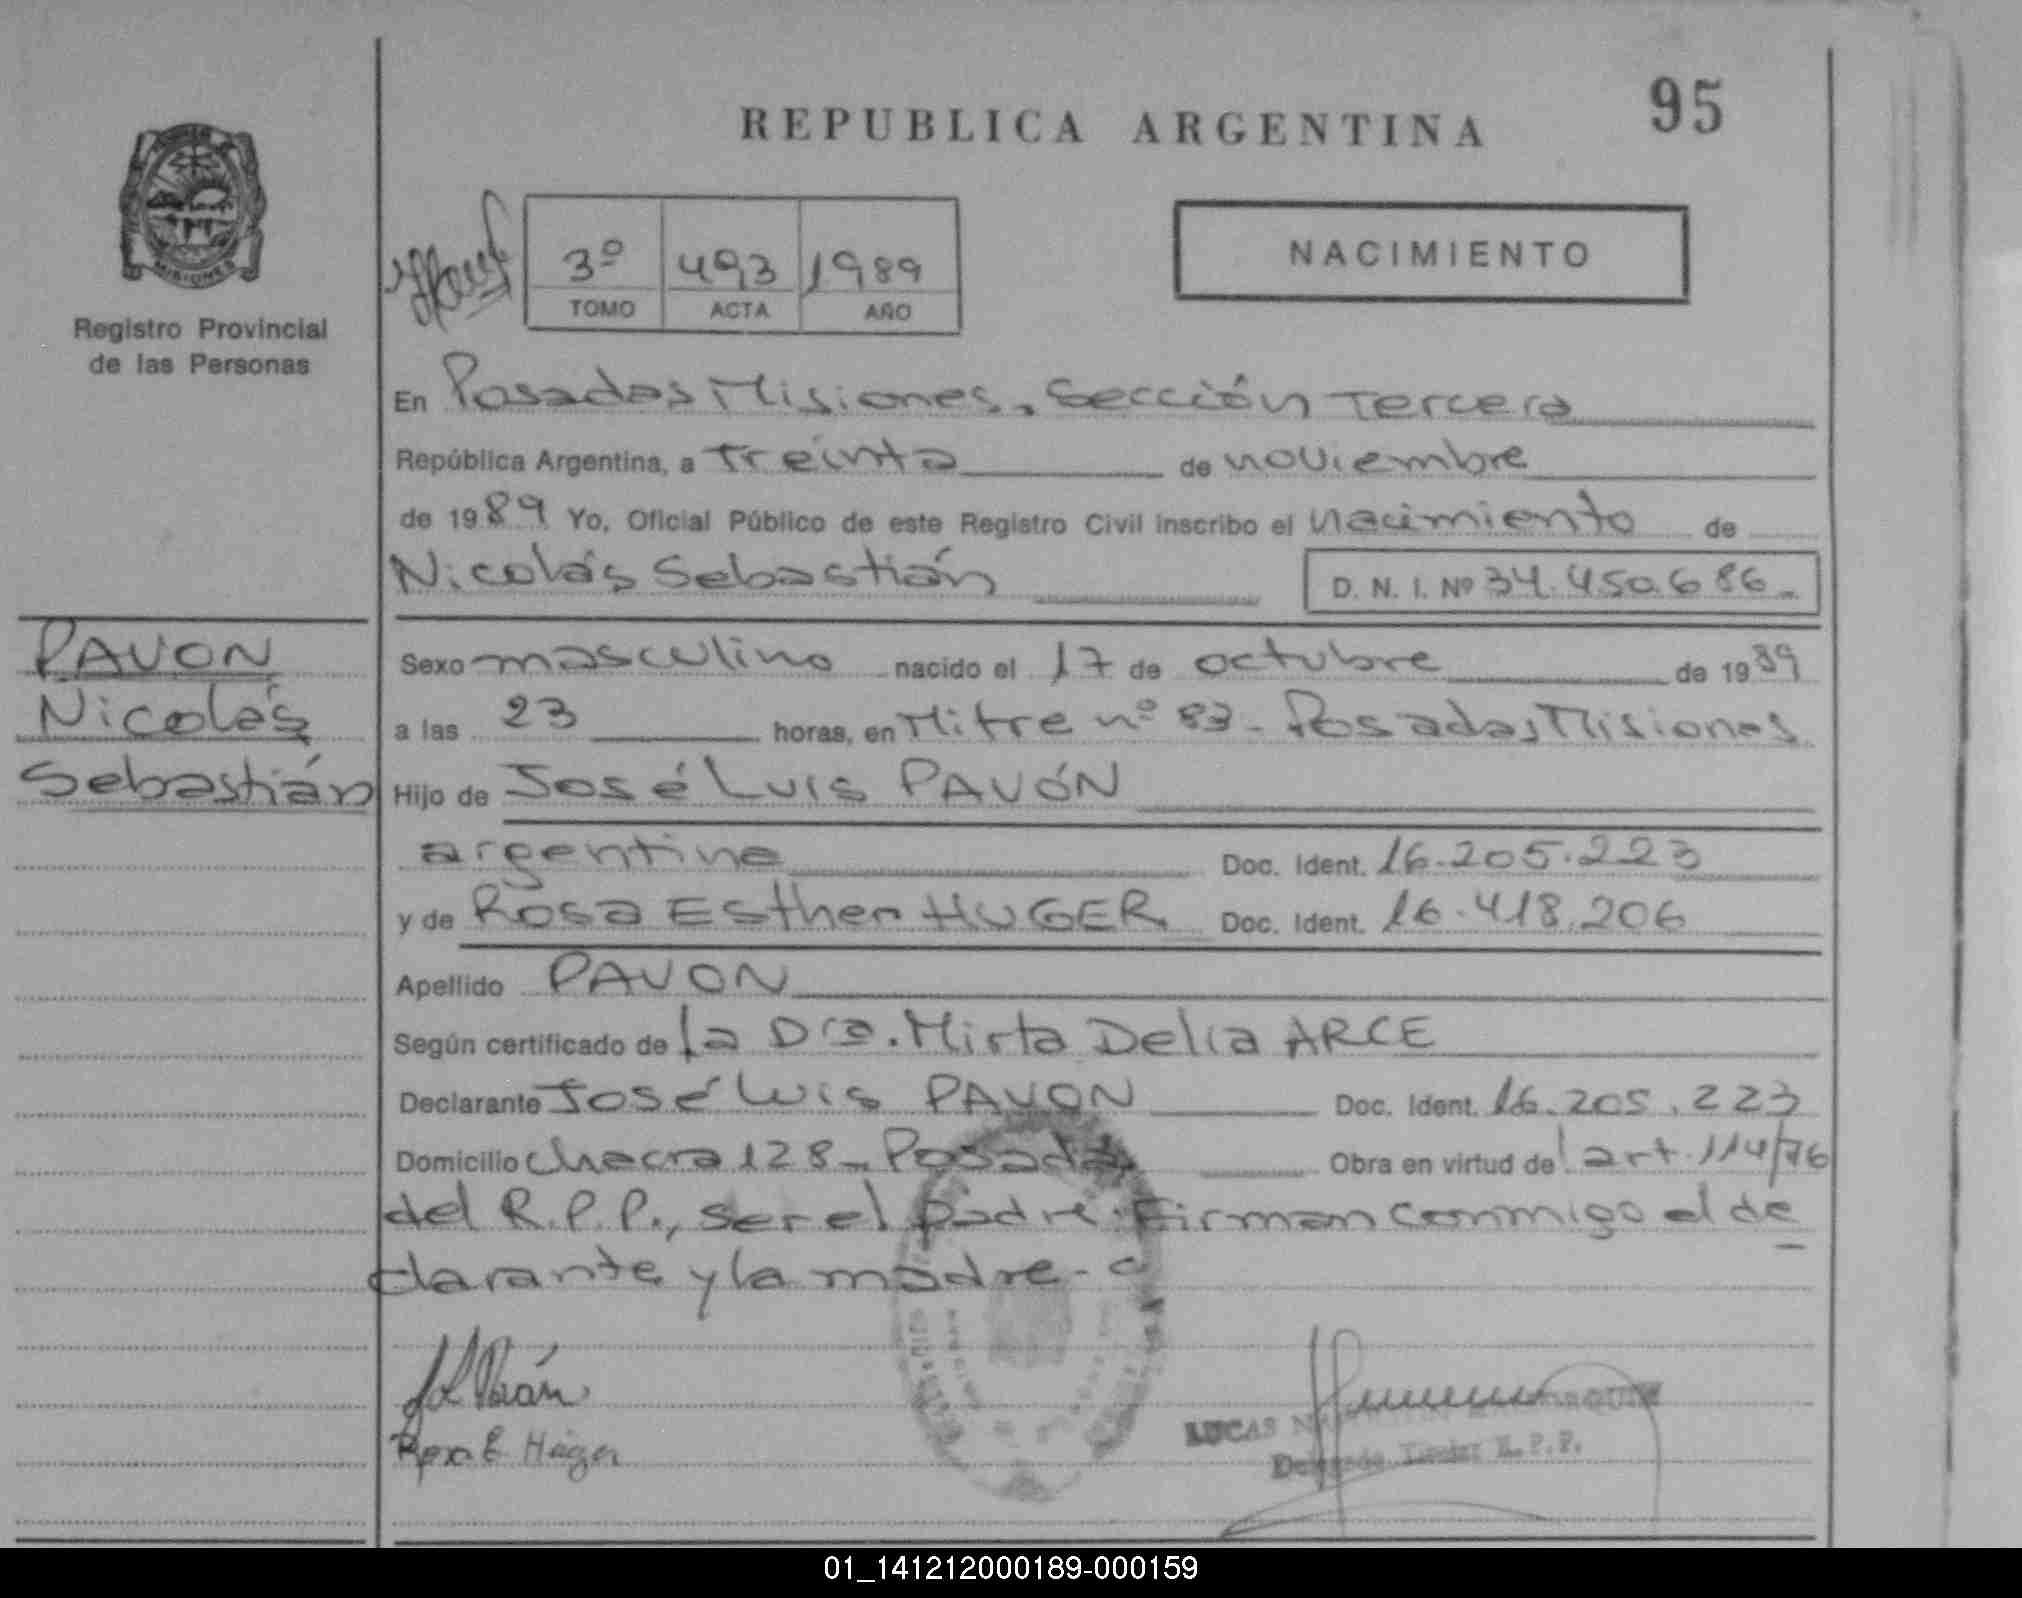 REPUBLICA ARGENTINA
95
MISIONES
Registro Provincial
de las Personas
3º 493 1989
TOMO ACTA AÑO
NACIMIENTO
En Posadas Misiones. Sección Tercera
República Argentina, a treinta de noviembre
de 1989 Yo, Oficial Público de este Registro Civil inscribo el nacimiento de
Nicolás Sebastián D. N. I. Nº 34.450.686
PAVON
Nicolás
Sebastián
Sexo masculino nacido el 17 de octubre de 1989
a las 23 horas, en Mitre nº 83 - Posadas Misiones
Hijo de José Luis PAVÓN
argentina Doc. Ident. 16.205.223
y de Rosa Esther HUGER Doc. Ident. 16.418.206
Apellido PAVON
Según certificado de la Dra. Mirta Delia ARCE
Declarante José Luis PAVON Doc. Ident. 16.205.223
Domicilio chacra 128 - Posadas Obra en virtud del art. 114/76
del R.P.P., ser el padre. Firman conmigo el de
clarante y la madre -
Rosa E. Huger
LUCAS
R.P.P.
01_141212000189-000159